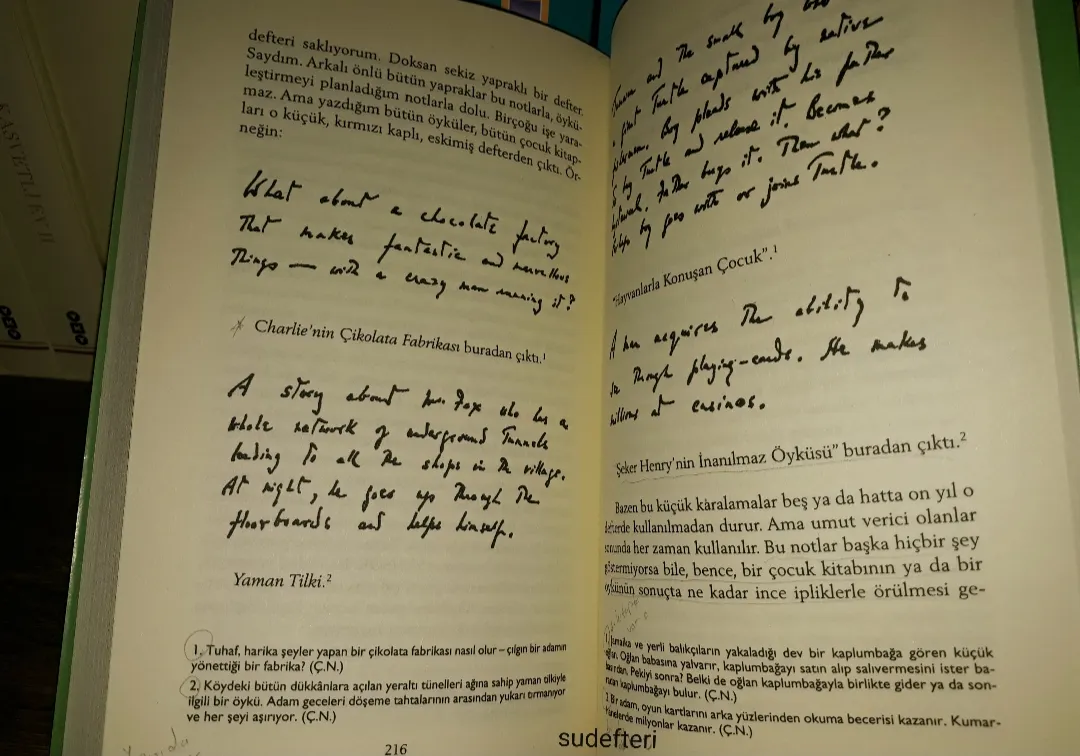 defteri saklıyorum. Doksan sekiz yapraklı bir defter.
Saydım. Arkalı önlü bütün yapraklar bu notlarla, öykü-
leştirmeyi planladığım notlarla dolu. Birçoğu işe yara-
maz. Ama yazdığım bütün öyküler, bütün çocuk kitap-
ları o küçük, kırmızı kaplı, eskimiş defterden çıktı. Ör-
neğin:
What about a chocolate factory
That makes fantastic and marvellous
Things — with a crazy man running it?
Charlie'nin Çikolata Fabrikası buradan çıktı.¹
A story about Mr. Fox who has a
whole network of underground Tunnels
leading To all The shops in The village.
At night, he goes up Through The
floorboards and helps himself.
Yaman Tilki.²
1. Tuhaf, harika şeyler yapan bir çikolata fabrikası nasıl olur – çılgın bir adamın
yönettiği bir fabrika? (Ç.N.)
2. Köydeki bütün dükkânlara açılan yeraltı tünelleri ağına sahip yaman tilkiyle
ilgili bir öykü. Adam geceleri döşeme tahtalarının arasından yukarı tırmanıyor
ve her şeyi aşırıyor. (Ç.N.)
216
and The small boy
Turtle captured by native
Boy pleads with his father
Turtle and release it. Becomes
Father buys it. Then what?
boy goes with or joins Turtle.
"Hayvanlarla Konuşan Çocuk".¹
A man acquires The ability To
Through playing-cards. He makes
millions at casinos.
Şeker Henry'nin İnanılmaz Öyküsü" buradan çıktı.²
Bazen bu küçük karalamalar beş ya da hatta on yıl o
defterde kullanılmadan durur. Ama umut verici olanlar
sonunda her zaman kullanılır. Bu notlar başka hiçbir şey
göstermiyorsa bile, bence, bir çocuk kitabının ya da bir
öykünün sonuçta ne kadar ince ipliklerle örülmesi ge-
1. Jamaika ve yerli balıkçıların yakaladığı dev bir kaplumbağa gören küçük
oğlan. Oğlan babasına yalvarır, kaplumbağayı satın alıp salıvermesini ister ba-
basından. Pekiyi sonra? Belki de oğlan kaplumbağayla birlikte gider ya da son-
radan kaplumbağayı bulur. (Ç.N.)
2 Bir adam, oyun kartlarını arka yüzlerinden okuma becerisi kazanır. Kumar-
hanelerde milyonlar kazanır. (Ç.N.)
sudefteri